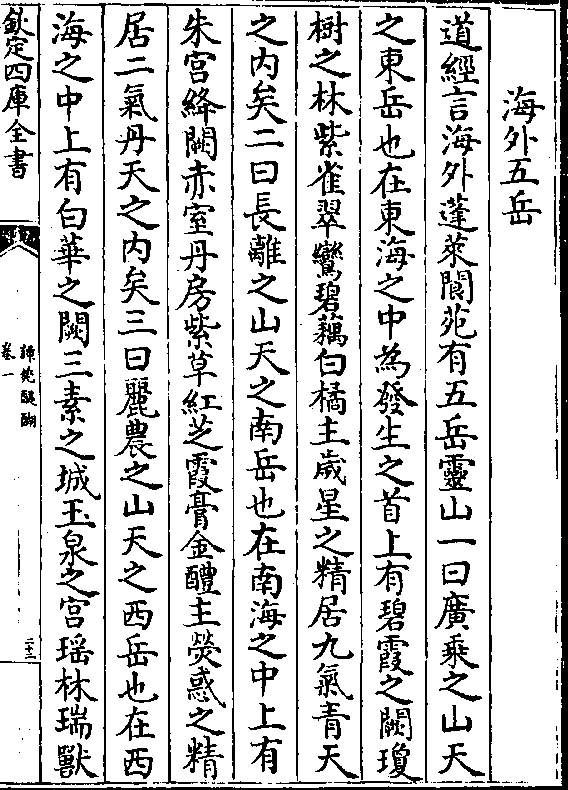 海外五岳
道經言海外蓬萊閬苑有五岳靈山一曰廣乘之山天
之東岳也在東海之中為發生之首上有碧霞之闕瓊
樹之林紫雀翠鸞碧藕白橘主歲星之精居九氣青天
之内矣二曰長離之山天之南岳也在南海之中上有
朱宮絳闕赤室丹房紫草紅芝霞膏金醴主熒惑之精
居二氣丹天之内矣三曰麗農之山天之西岳也在西
海之中上有白華之闕三素之城玉泉之宮瑶林瑞獸
欽定四庫全書
譚苑醍醐
卷一
二十三